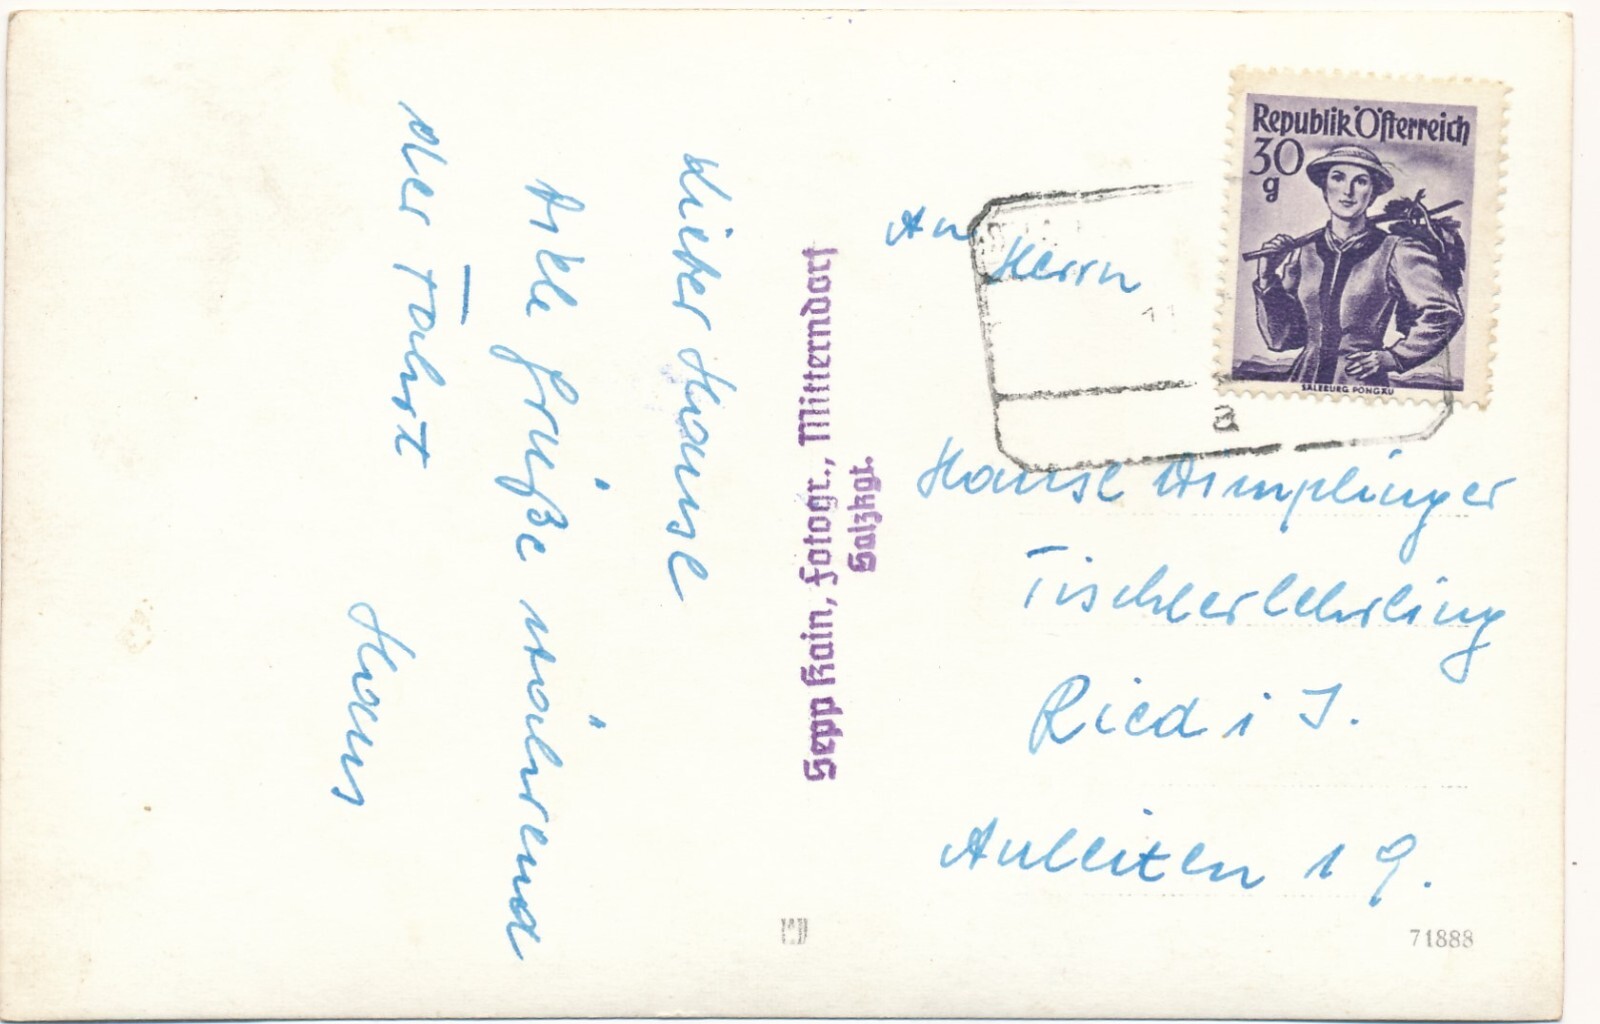 Lieber Hansl
Alle Grüße während
der Fahrt
Hans
Sepp Kain, Fotogr., Mitterndorf
Salzkgt.
Republik Österreich
30
g
SALZBURG PONGAU
a
An
Herrn
Hansl Wimplinger
Tischlerlehrling
Ried i I.
Auleiten 19.
71888